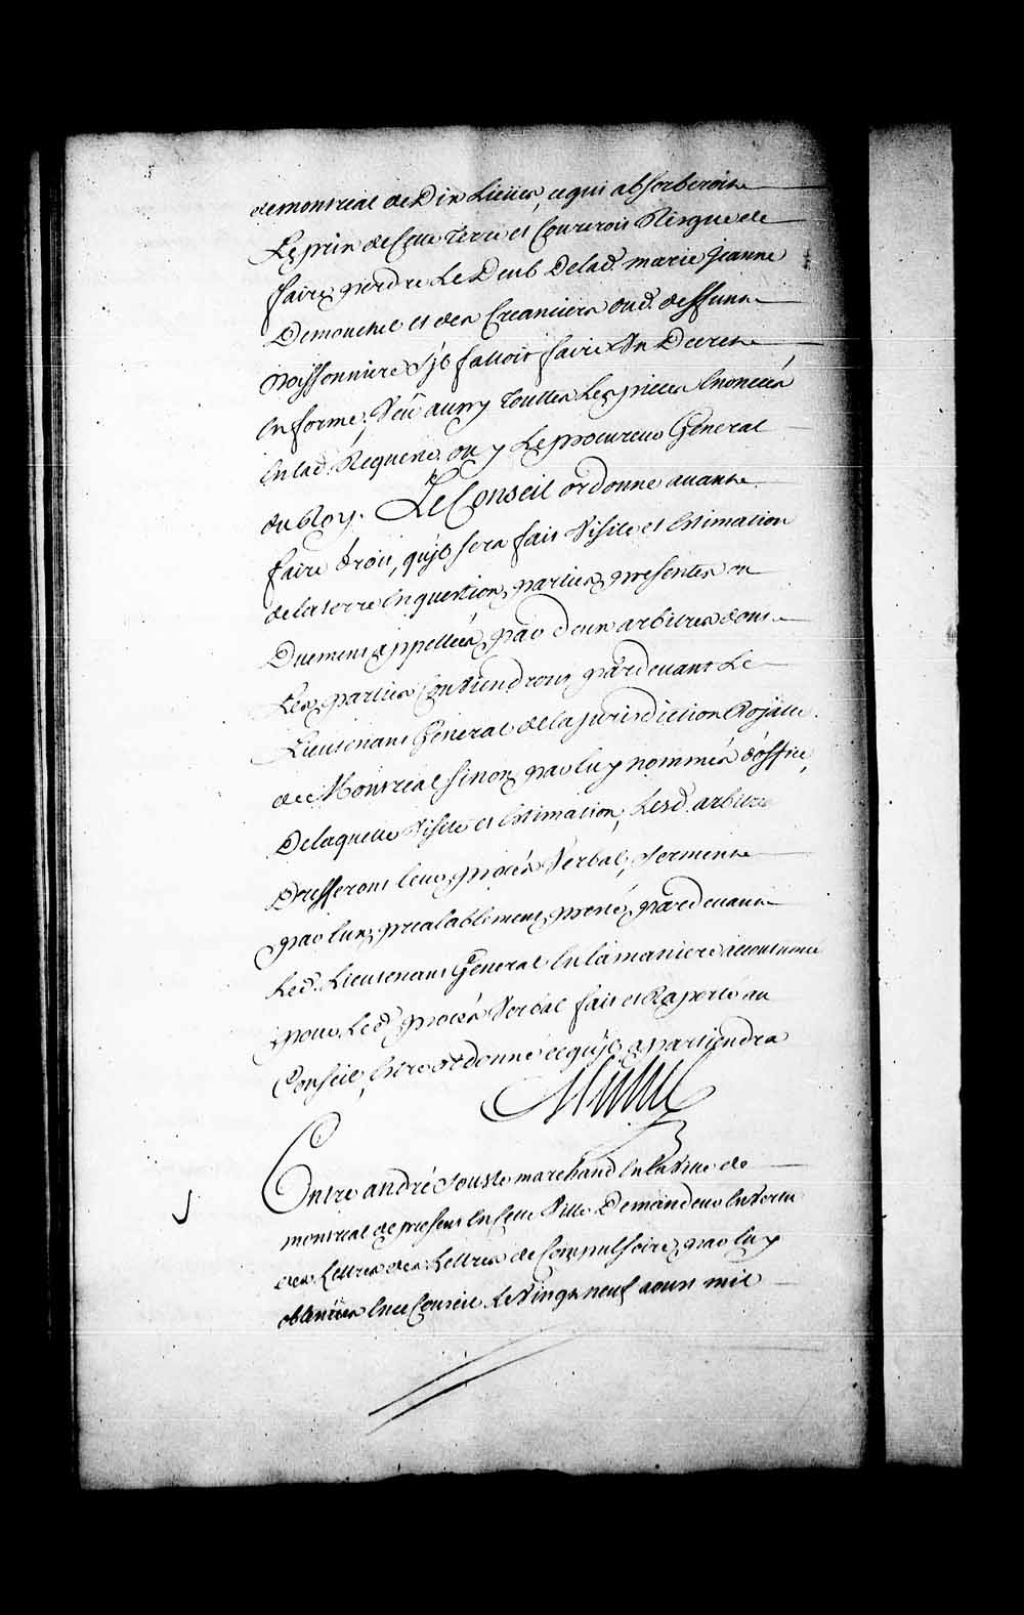 de montreal de Dix Lieües, ce qui absorberoit
Le prix de Cette Terre et Coureroit Risque de
faire perdre Le Deub De lad. marie Jeanne
Demouchel et des Creanciers dud. deffunt
poissonniere s'il falloit faire Un Decret
En forme; Veü aussy Touttes Les pieces Enoncées
En lad. Requeste. ouy Le procureur General
du Roy. Le Conseil ordonne avant
faire droit, qu'il sera fait Visite et Estimation
de la terre En question, parties presentes ou
Duement appellées, par deux arbitres dont
Les parties Conviendront pardevant Le
Lieutenant General de la Jurisdiction Royalle
de Montreal sinon par luy nommés d'office,
De laquelle Visite et Estimation, Lesd. arbitres
Dresseront leur procés Verbal, serment
par Eux prealablement presté pardevant
Led. Lieutenant General En la maniere accoutumée
pour Led. procés Verbal fait et Raporté au
Conseil, Estre ordonné ce qu'il apartiendra
Entre andré Souste marchand En la Ville de
montreal de present En Cette Ville Demandeur En Vertu
des Lettres des Lettres de Compulsoire par luy
obtenües En ce Conseil Le Vingt neuf aoust mil